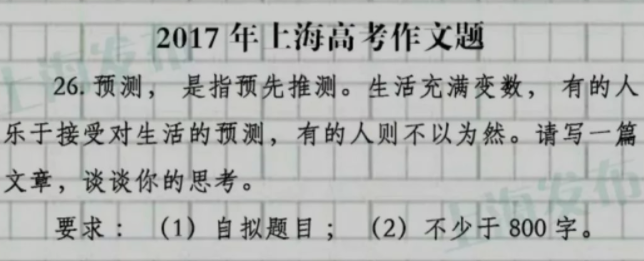 2017年上海高考作文题
26. 预测， 是指预先推测。生活充满变数， 有的人
乐于接受对生活的预测，有的人则不以为然。请写一篇
文章，谈谈你的思考。
要求：（1）自拟题目；（2）不少于 800 字。
上海发布
上海发布